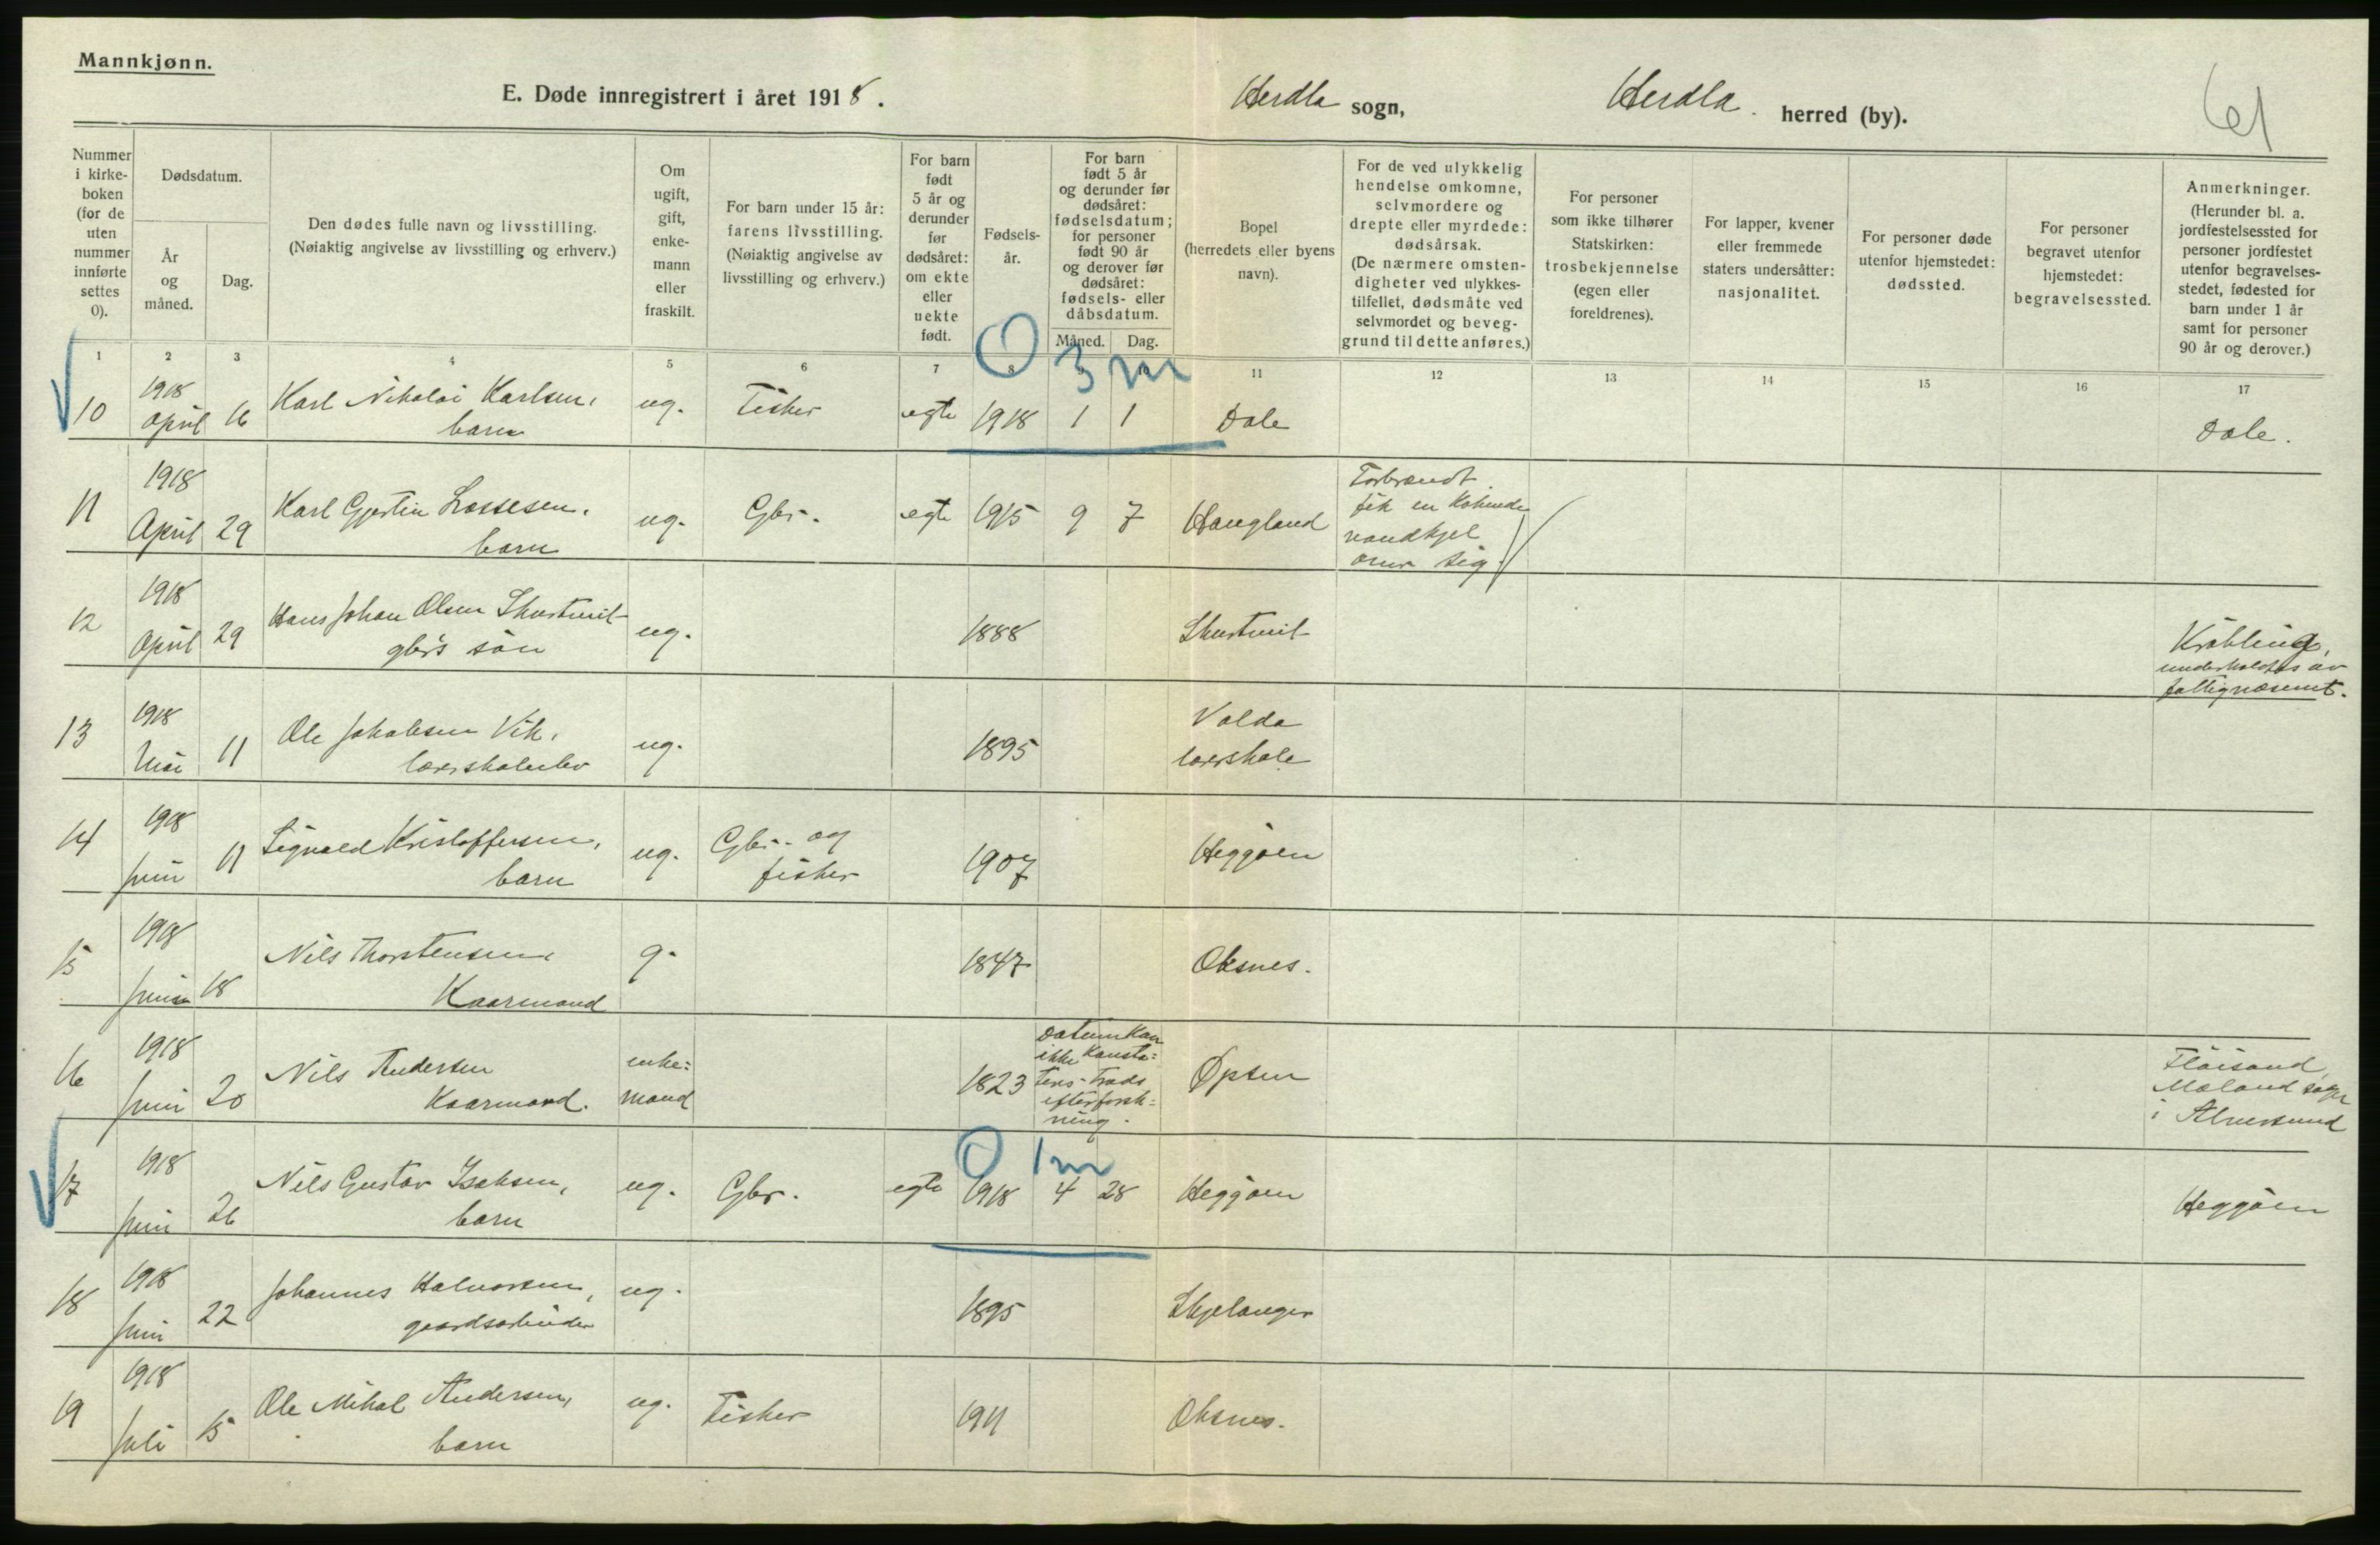 Mannkjønn.
E. Døde innregistrert i året 1918.
Herdla sogn,
Herdla herred (by).
61
Nummer i kirke- boken (for de uten nummer innførte settes 0).
Dødsdatum.
År og måned.
Dag.
Den dødes fulle navn og livsstilling. (Nøiaktig angivelse av livsstilling og erhverv.)
Om ugift, gift, enke- mann eller fraskilt.
For barn under 15 år: farens livsstilling. (Nøiaktig angivelse av livsstilling og erhverv.)
For barn født 5 år og derunder før dødsåret: om ekte eller uekte født.
Fødsels- år.
For barn født 5 år og derunder før dødsåret: fødselsdatum; for personer født 90 år og derover før dødsåret: fødsels- eller dåbsdatum.
Måned. Dag.
Bopel (herredets eller byens navn).
For de ved ulykkelig hendelse omkomne, selvmordere og drepte eller myrdede: dødsårsak. (De nærmere omsten- digheter ved ulykkes- tilfellet, dødsmåte ved selvmordet og beveg- grund til dette anføres.)
For personer som ikke tilhører Statskirken: trosbekjennelse (egen eller foreldrenes).
For lapper, kvener eller fremmede staters undersåtter: nasjonalitet.
For personer døde utenfor hjemstedet: dødssted.
For personer begravet utenfor hjemstedet: begravelsessted.
Anmerkninger. (Herunder bl. a. jordfestelsessted for personer jordfestet utenfor begravelses- stedet, fødested for barn under 1 år samt for personer 90 år og derover.)
1 2 3 4 5 6 7 8 9 10 11 12 13 14 15 16 17
0 3 m
10 1918 April 16 Karl Nikolai Karlsen, barn ug. Fisker egte 1918 1 1 Dale Dale.
11 1918 April 29 Karl Gjertin Lassesen, barn ug. Gbr. egte 1915 9 7 Haugland Forbrændt. fik en kokende vandkjel over sig.
12 1918 April 29 Hans Johan Olsen Skurtveit gbr's søn ug. 1888 Skurtveit Krøbling, underholdtes av fattigvæsenet.
13 1918 Mai 11 Ole Jakobsen Vik, lærerskoleelev ug. 1895 Volda lærerskole
14 1918 Juni 11 Sigvald Kristoffersen, barn ug. Gbr. og fisker 1907 Heggøen
15 1918 Juni 18 Nils Thorstensen, Kaarmand g. 1847 Oksnes.
16 1918 Juni 20 Nils Andersen Kaarmand. enke= mand 1823 Datum kan ikke konsta= teres trods efterforsk= ning. Øpsen Fløisand, Mæland sogn i Alversund
0 1 m
17 1918 Juni 26 Nils Gustav Isaksen, barn ug. Gbr. egte 1918 4 28 Heggøen Heggøen
18 1918 Juni 22 Johannes Halvorsen, gaardsarbeider ug. 1895 Skjelanger
19 1918 Juli 15 Ole Mikal Andersen, barn ug. Fisker 1911 Oksnes.